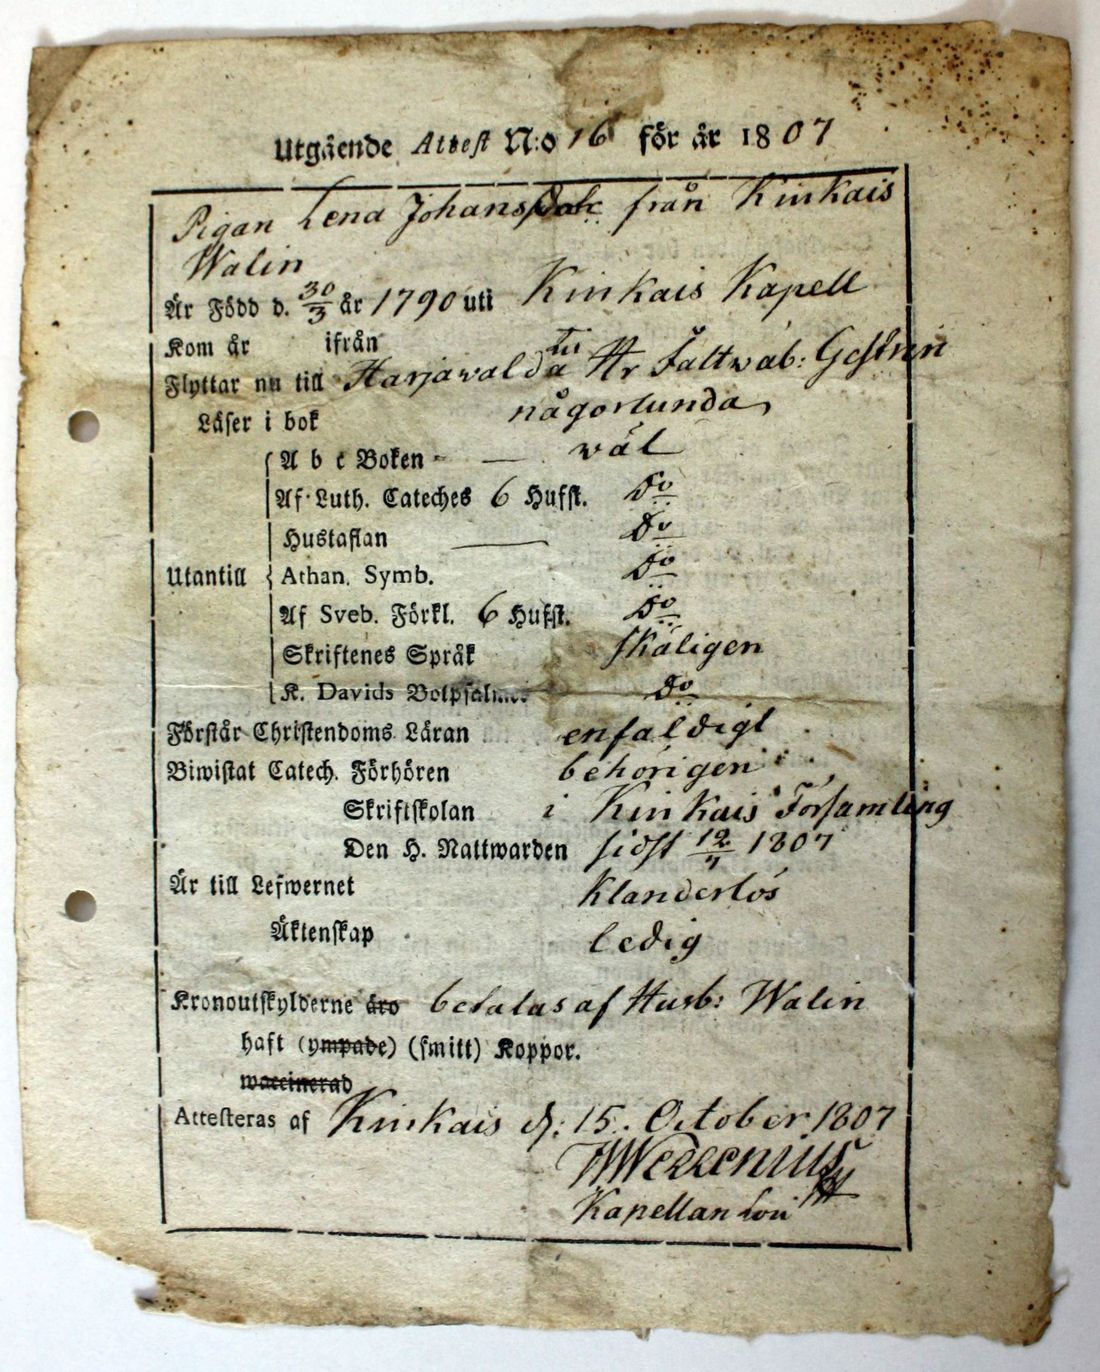 Utgående Attest N:o 16 för år 1807
Pigan Lena Johansdotr från Kinkais
Walin
Är Född d. 30/3 år 1790 uti Kinkais Kapell
Kom år ifrån
Flyttar nu till Harjavalda till Hr Fältwäb: Gestrin
Läser i bok någorlunda
A b c Boken - — wäl
Af Luth. Cateches 6 Hufst. Do
Hustaflan — Do
Utantill Athan. Symb. Do
Af Sveb. Förkl. 6 Hufst. Do
Skriftenes Språk skäligen
K. Davids Botpsalmer Do
Förstår Christendoms Läran enfaldigt
Biwistat Catech. Förhören behörigen
Skriftskolan i Kinkais Församling
Den H. Nattwarden sidst 12/7 1807
Är till Lefwernet Klanderlös
Äktenskap ledig
Kronoutskylderne äro betalas af Husb: Walin
haft (ympade) (smitt) Koppor.
waccinerad
Attesteras af Kinkais d: 15. October 1807
Kapellan